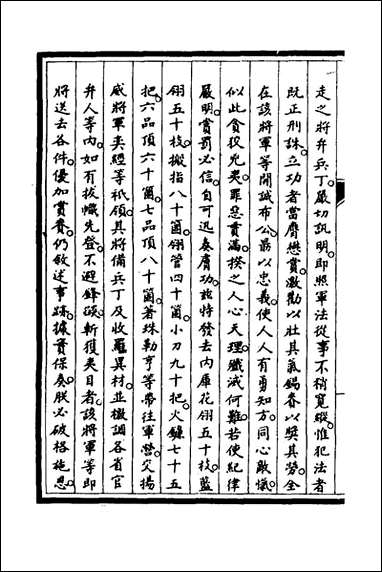 走之將弁兵丁嚴切訊明即照軍法從事不稍寬縱惟犯法者
既正刑誅立功者當膺懋賞激勸以壯其氣錫眷以奬其勞全
在該將軍等開誠布公最以忠義使人人有勇知方同心敵愾
似此貪狡兇夷罪惡貫滿揆之人心天理殲滅何難若使紀律
嚴明賞罰必信自可迅奏膚功茲特發去内庫花翎五十枝藍
翎五十枝搬指八十箇翎管四十箇小刀九十把火鐮七十五
把六品頂六十箇七品頂八十箇著珠勒亨等帶往軍營交揚
威將軍奕經等祇領其將備兵丁及收羅異材並檄調各省官
弁人等内如有拔幟先登不避鋒鏑斬獲夷目者該將軍等即
將送去各件優加賞賚仍敘述事跡據實保奏朕必破格施恩